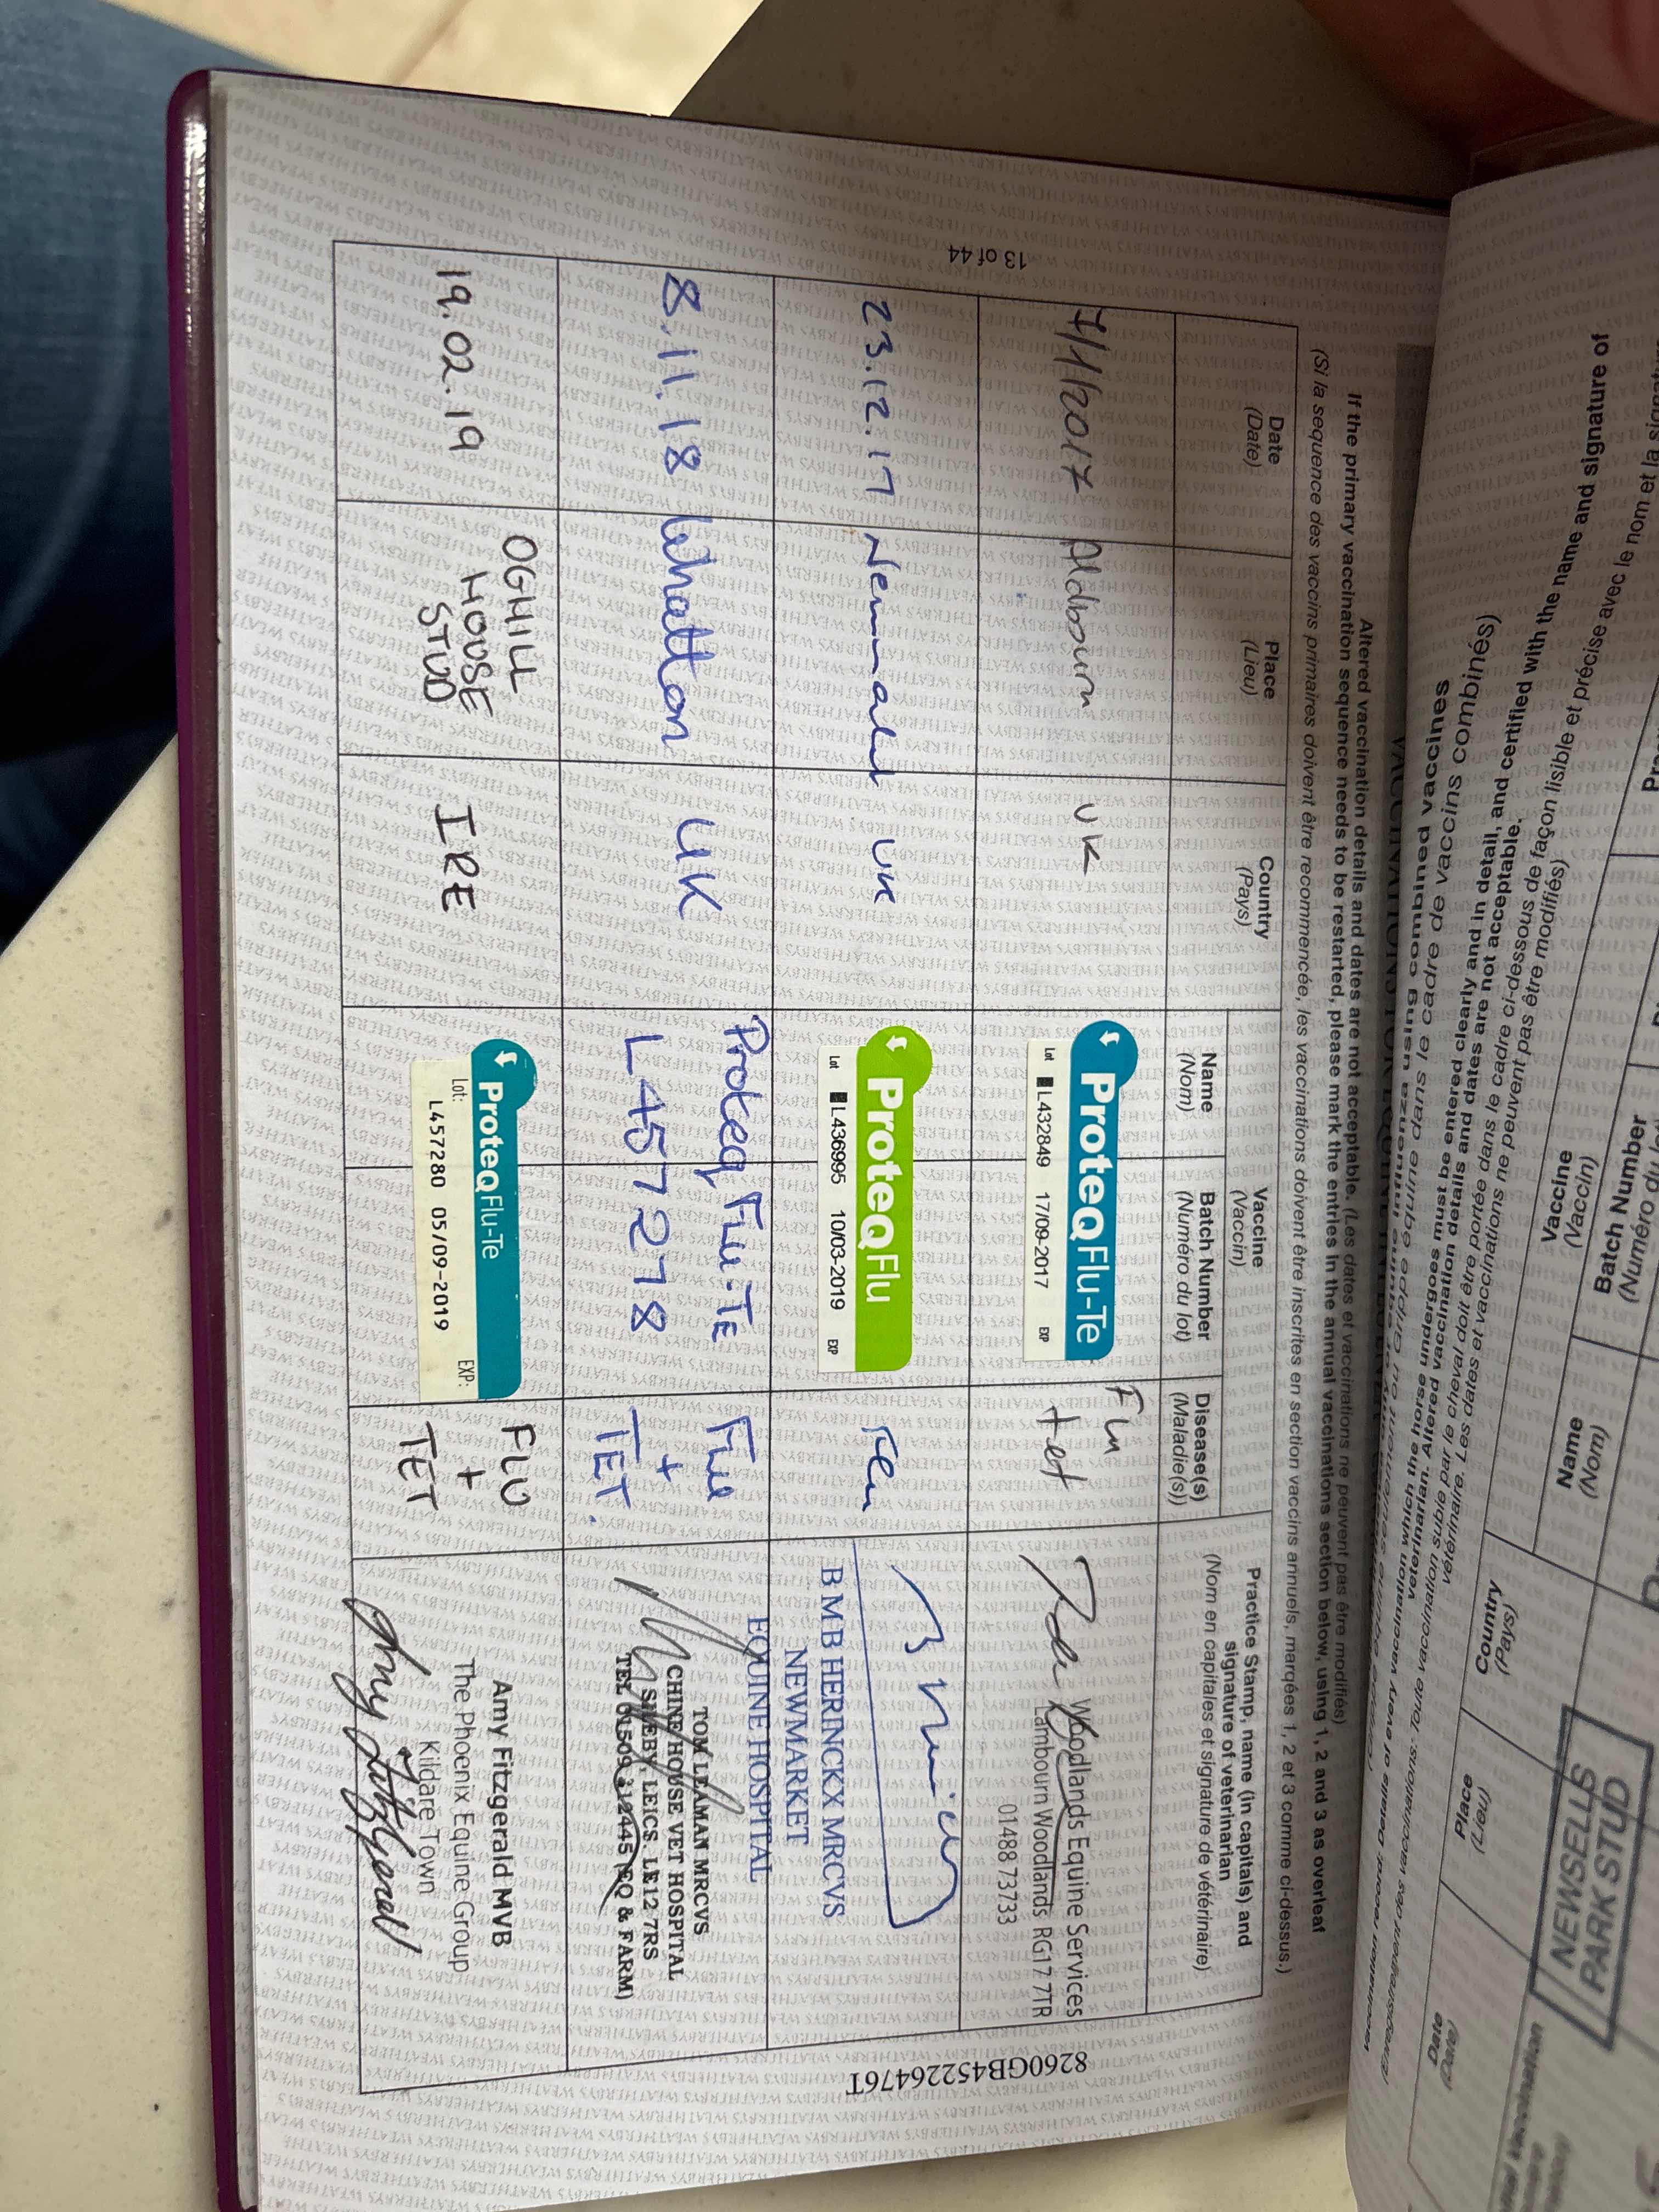 NEWSELLS
PARK STUD
Date
(Date)
Place
(Lieu)
Country
(Pays)
Vaccine
(Vaccin)
Name
(Nom)
Batch Number
the name and signature of
using combined vaccines
dans le cadre de vaccins combinés)
Details of every vaccination which the horse undergoes must be entered clearly and in detail, and certified with
veterinarian. Altered vaccination details and dates are not acceptable.
Toute vaccination subie par le cheval doit être portée dans le cadre ci-dessous de façon lisible et précise avec le nom et la signature
vétérinaire. Les dates et vaccinations ne peuvent pas être modifiés)
Altered vaccination details and dates are not acceptable. (Les dates et vaccinations ne peuvent pas être modifiés)
If the primary vaccination sequence needs to be restarted, please mark the entries in the annual vaccinations section below, using 1, 2 and 3 as overleaf
(Si la sequence des vaccins primaires doivent être recommencée, les vaccinations doivent être inscrites en section vaccins annuels, marqées 1, 2 et 3 comme ci-dessus.)
Date
(Date)
Place
(Lieu)
Country
(Pays)
Vaccine
(Vaccin)
Name
(Nom)
Batch Number
(Numéro du lot)
Disease(s)
(Maladie(s))
Practice Stamp, name (in capitals) and
signature of veterinarian
(Nom en capitales et signature de vétérinaire)
Aldbourn UK
ProteqFlu-Te
Lot L432849 17/09-2017 EXP
Flu
+ tet
Woodlands Equine Services
Lambourn Woodlands RG17 7TR
01488 73733
23.12.17 UK
ProteqFlu
Lot L436995 10/03-2019 EXP
Flu
B M B HERINCKX MRCVS
NEWMARKET
EQUINE HOSPITAL
8.11.18 Whatton UK
Proteq Flu-TE
L457278
Flu
+
TET.
TOM LEAMAN MRCVS
CHINE HOUSE VET HOSPITAL
SILEBY, LEICS. LE12 7RS
TEL 01509 812445 (EQ & FARM)
19.02.19
OGHILL
HOUSE
STUD
IRE
ProteqFlu-Te
Lot: EXP:
L457280 05/09-2019
FLU
+
TET
Amy Fitzgerald MVB
The Phoenix Equine Group
Kildare Town
Amy Fitzgerald
13 of 44
8260GB45226476T